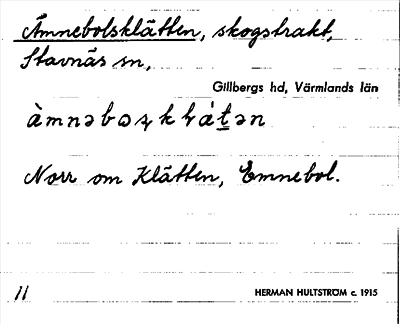 Ämnebolsklätten, skogstrakt,
Stavnäs sn,
Gillbergs hd, Värmlands län
Norr om Klätten, Emnebol.
11
HERMAN HULTSTRÖM c. 1915